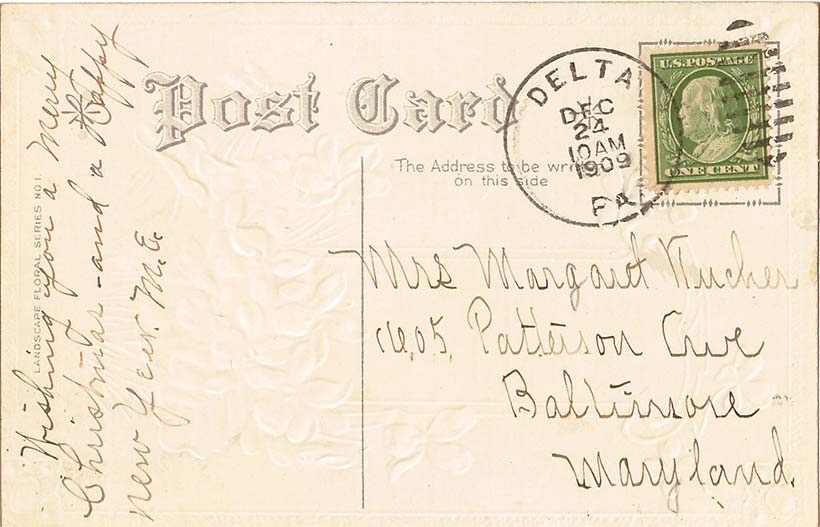 Post Card
The Address to be
on this side
DELTA
DEC
24
10 AM
1909
PA
U.S. POSTAGE
ONE CENT
Mrs Margaret
1605, Patterson Ave
Baltimore
Maryland.
LANDSCAPE FLORAL SERIES NO 1.
Wishing you a Merry
Christmas - and a Happy
New Year. M.E.